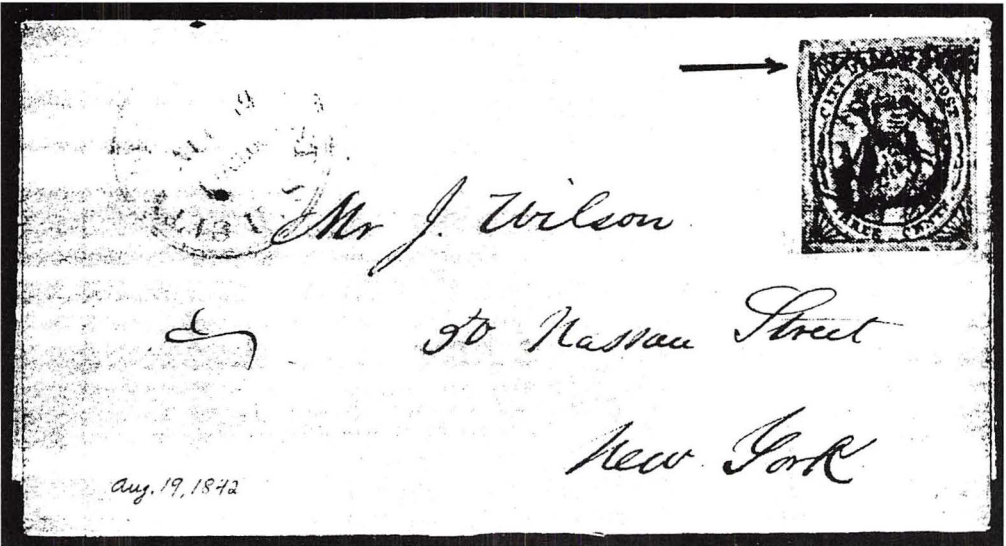 CITY POST
THREE CENTS
Mr J. Wilson
50 Nassau Street
New York
Aug. 19, 1842